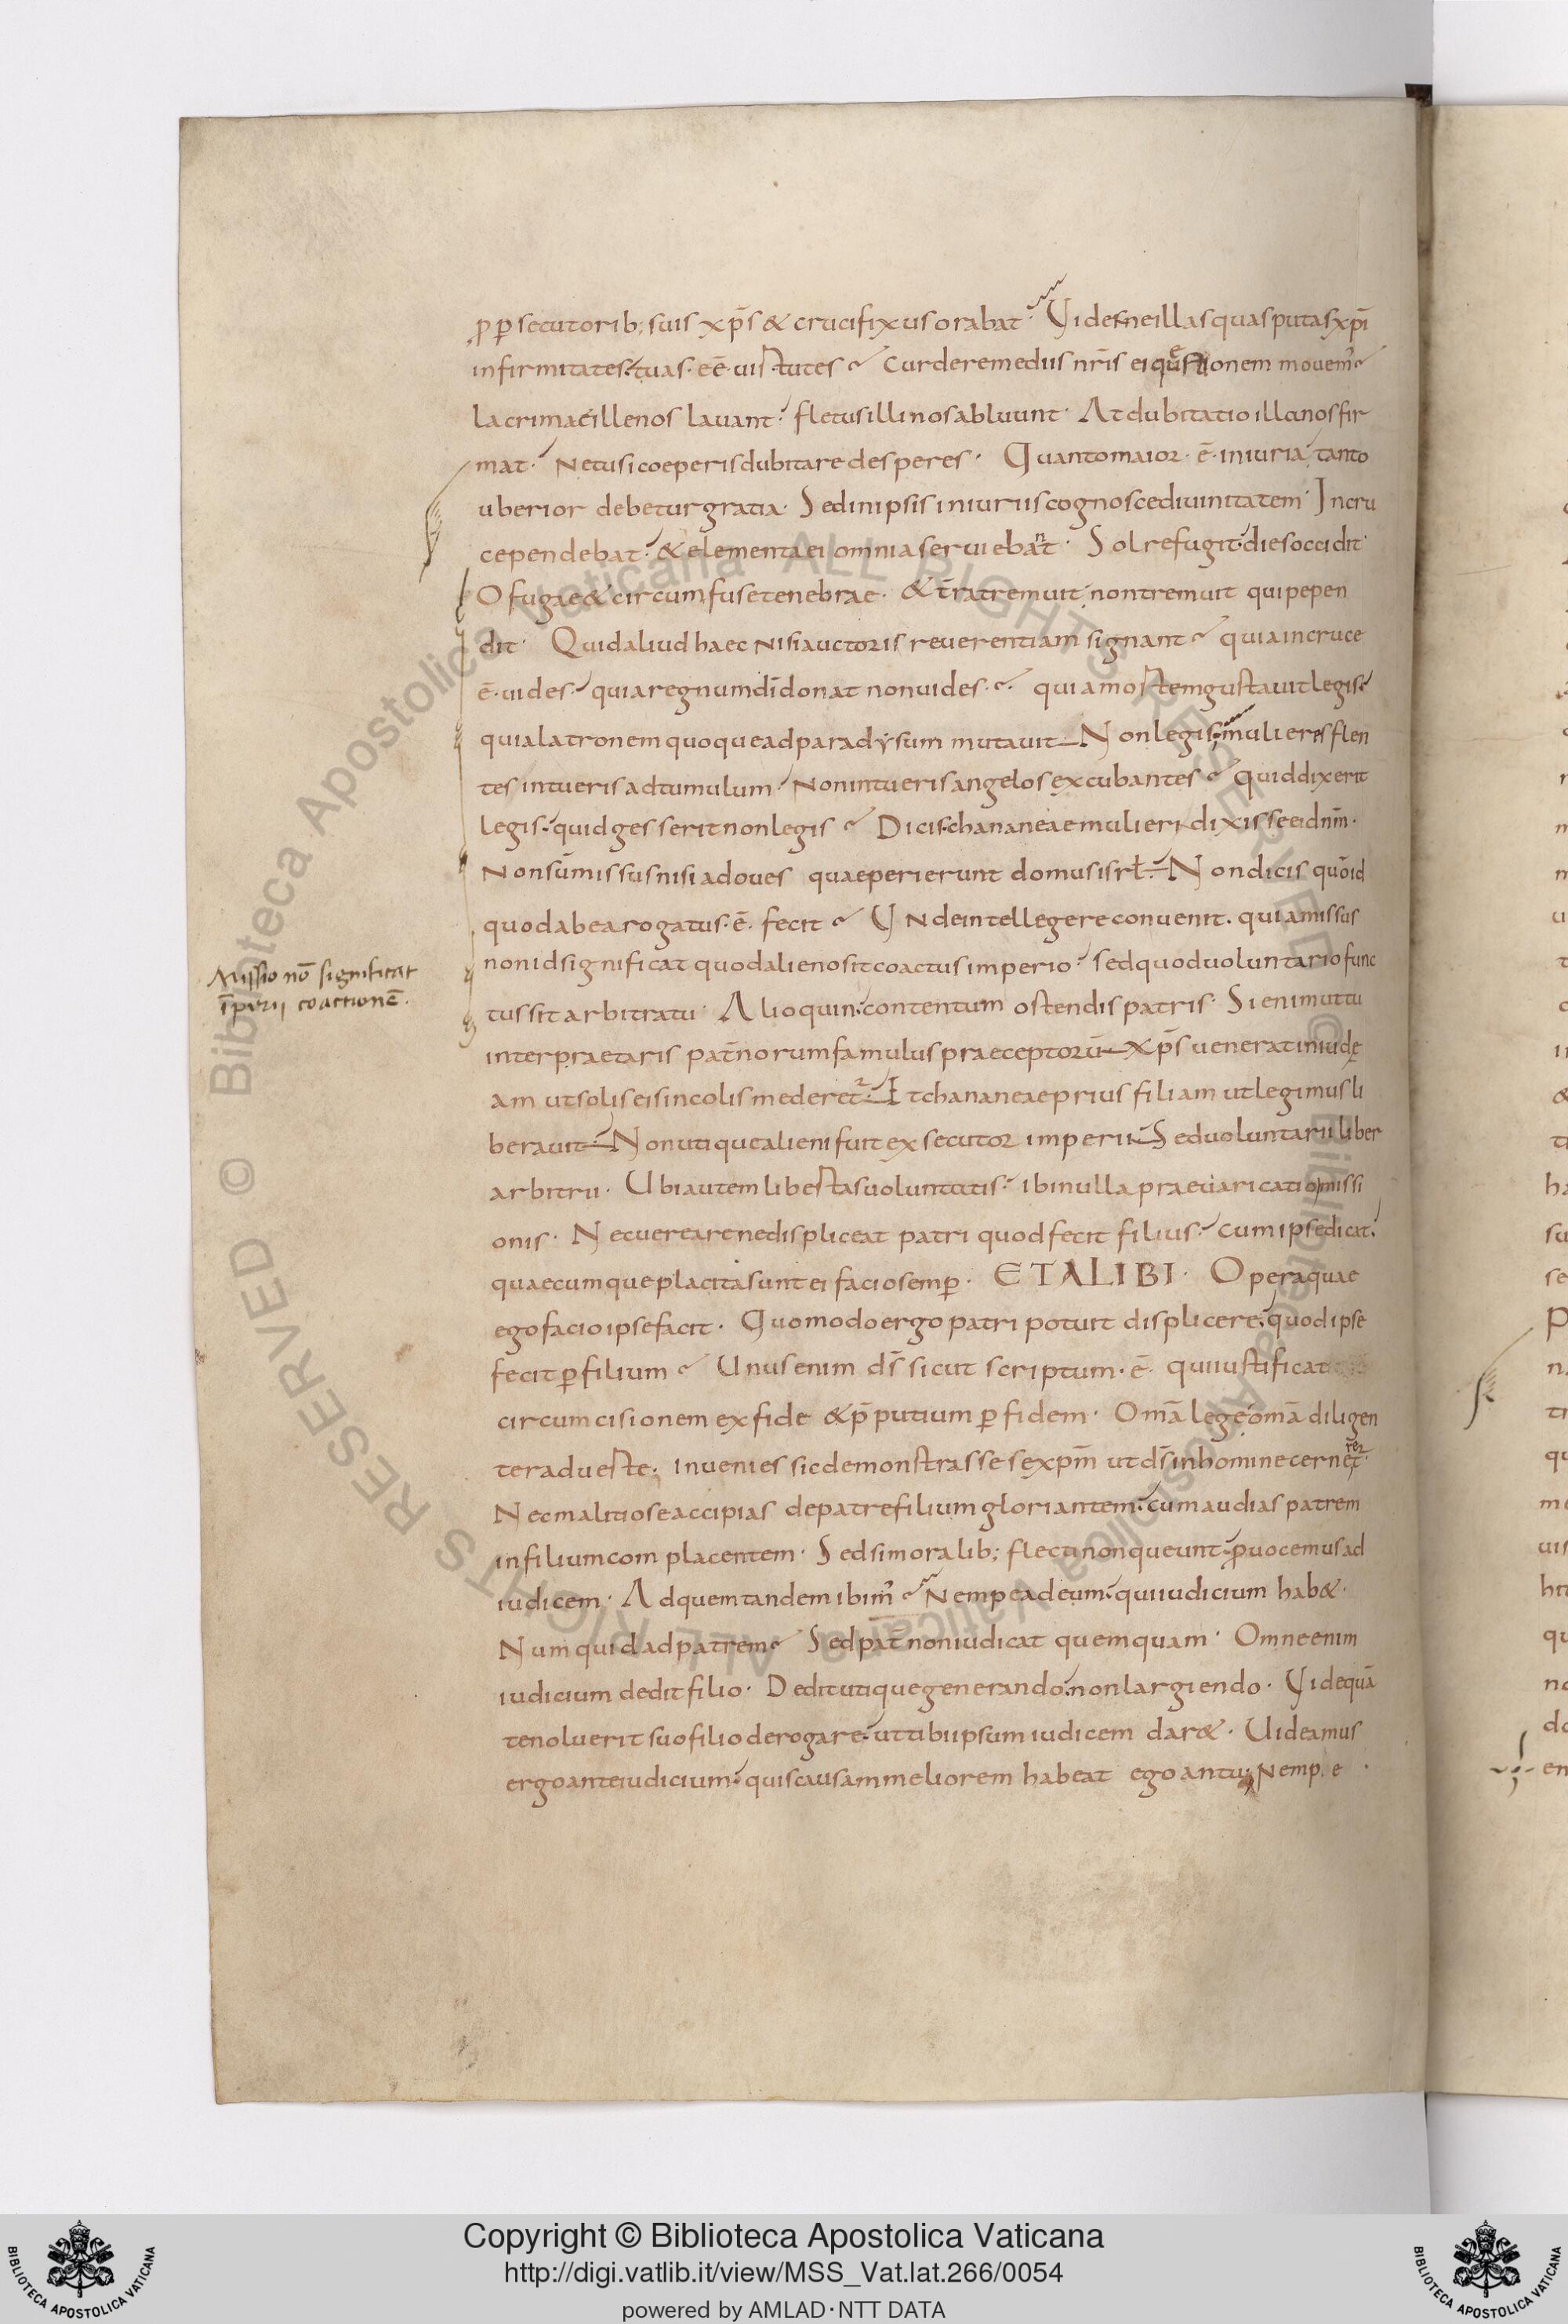 ꝓ p̱secutorib; suis xp̄s & crucifixus orabat. Vides ne illas quas putas xp̄i
infirmitates. tuas. eē uirtutes? Cur de remediis nr̄is ei questionem mouem'?
lacrimae ille nos lauant. fletus illi nos abluunt. At dubitatio illa nos fir
mat. Ne tu si coeperis dubitare desperes. Quanto maior. ē. iniuria tanto
uberior debetur gratia. Sed in ipsis iniuriis cognosce diuinitatem. In cru
ce pendebat. & elementa ei omnia seruiebant. Sol refugit. dies occidit.
O fugae & circumfuse tenebrae. & t̄ra tremuit. non tremuit qui pepen
dit. Quid aliud haec nisi auctoris reuerentiam signant? quia in cruce
ē. uides. quia regnum dī donat non uides? quia mortem gustauit legis.
quia latronem quoque ad paradysum mutauit. Non legis. mulieres flen
tes intueris ad tumulum. Non intueris angelos excubantes? quid dixerit
legis. quid gesserit non legis? Dicis. chananeae mulieri dixisse eidnm̄.
Non sum missus nisi ad oues quae perierunt domus isrł. Non dicis quōid
quod ab ea rogatus. ē. fecit? Unde intellegere conuenit. quia missus
non id significat quod alieno sit coactus imperio. sed quod uoluntario func
tus sit arbitratu. Alioquin. contentum ostendis patris. Si enim ut tu
interpraetaris patn̄orum famulus praeceptorū xp̄s uenerat in iudę
am ut solis eis incolis mederet'. Et chananeae prius filiam ut legimus li
berauit. Non utique alieni fuit exsecutor imperii. Sed uoluntarii liber
arbitrii. Ubi autem libertas uoluntatis. ibi nulla praeuaricatio missi
onis. Nec uereare ne displiceat patri quod fecit filius. cum ipse dicat.
quaecumque placita sunt ei facio semp̱. ET ALIBI. Opera quae
ego facio ipse facit. Quomodo ergo patri potuit displicere. quod ipse
fecit p̱ filium? Unus enim ds̄ sicut scriptum. ē. qui iustificat
circumcisionem ex fide & p̄putium p̱ fidem. Omā lege omā diligen
ter aduerte. inuenies sic demonstrasse se xpm̄ ut ds̄ in homine cerneret'.
Nec malitiose accipias de patre filium gloriantem. cum audias patrem
in filium complacentem. Sed si moralib; flecti non queunt. ꝓuocemus ad
iudicem. Ad quem tandem ibim'? Nempe ad eum. qui iudicium hab&.
Numquid ad patrem? Sed pat̄ non iudicat quemquam. Omne enim
iudicium dedit filio. Dedit utique generando. non largiendo. Vide quā
te noluerit suo filio derogare. ut tibi ipsum iudicem dar&. Uideamus
ergo ante iudicium. quis causam meliorem habeat ego an tu. Nempe
Missio nō significat
īperii coactionē.
Copyright © Biblioteca Apostolica Vaticana
http://digi.vatlib.it/view/MSS_Vat.lat.266/0054
powered by AMLAD·NTT DATA
BIBLIOTECA APOSTOLICA VATICANA
BIBLIOTECA APOSTOLICA VATICANA
© Biblioteca Apostolica Vaticana ALL RIGHTS RESERVED
© Biblioteca Apostolica Vaticana ALL RIGHTS RESERVED